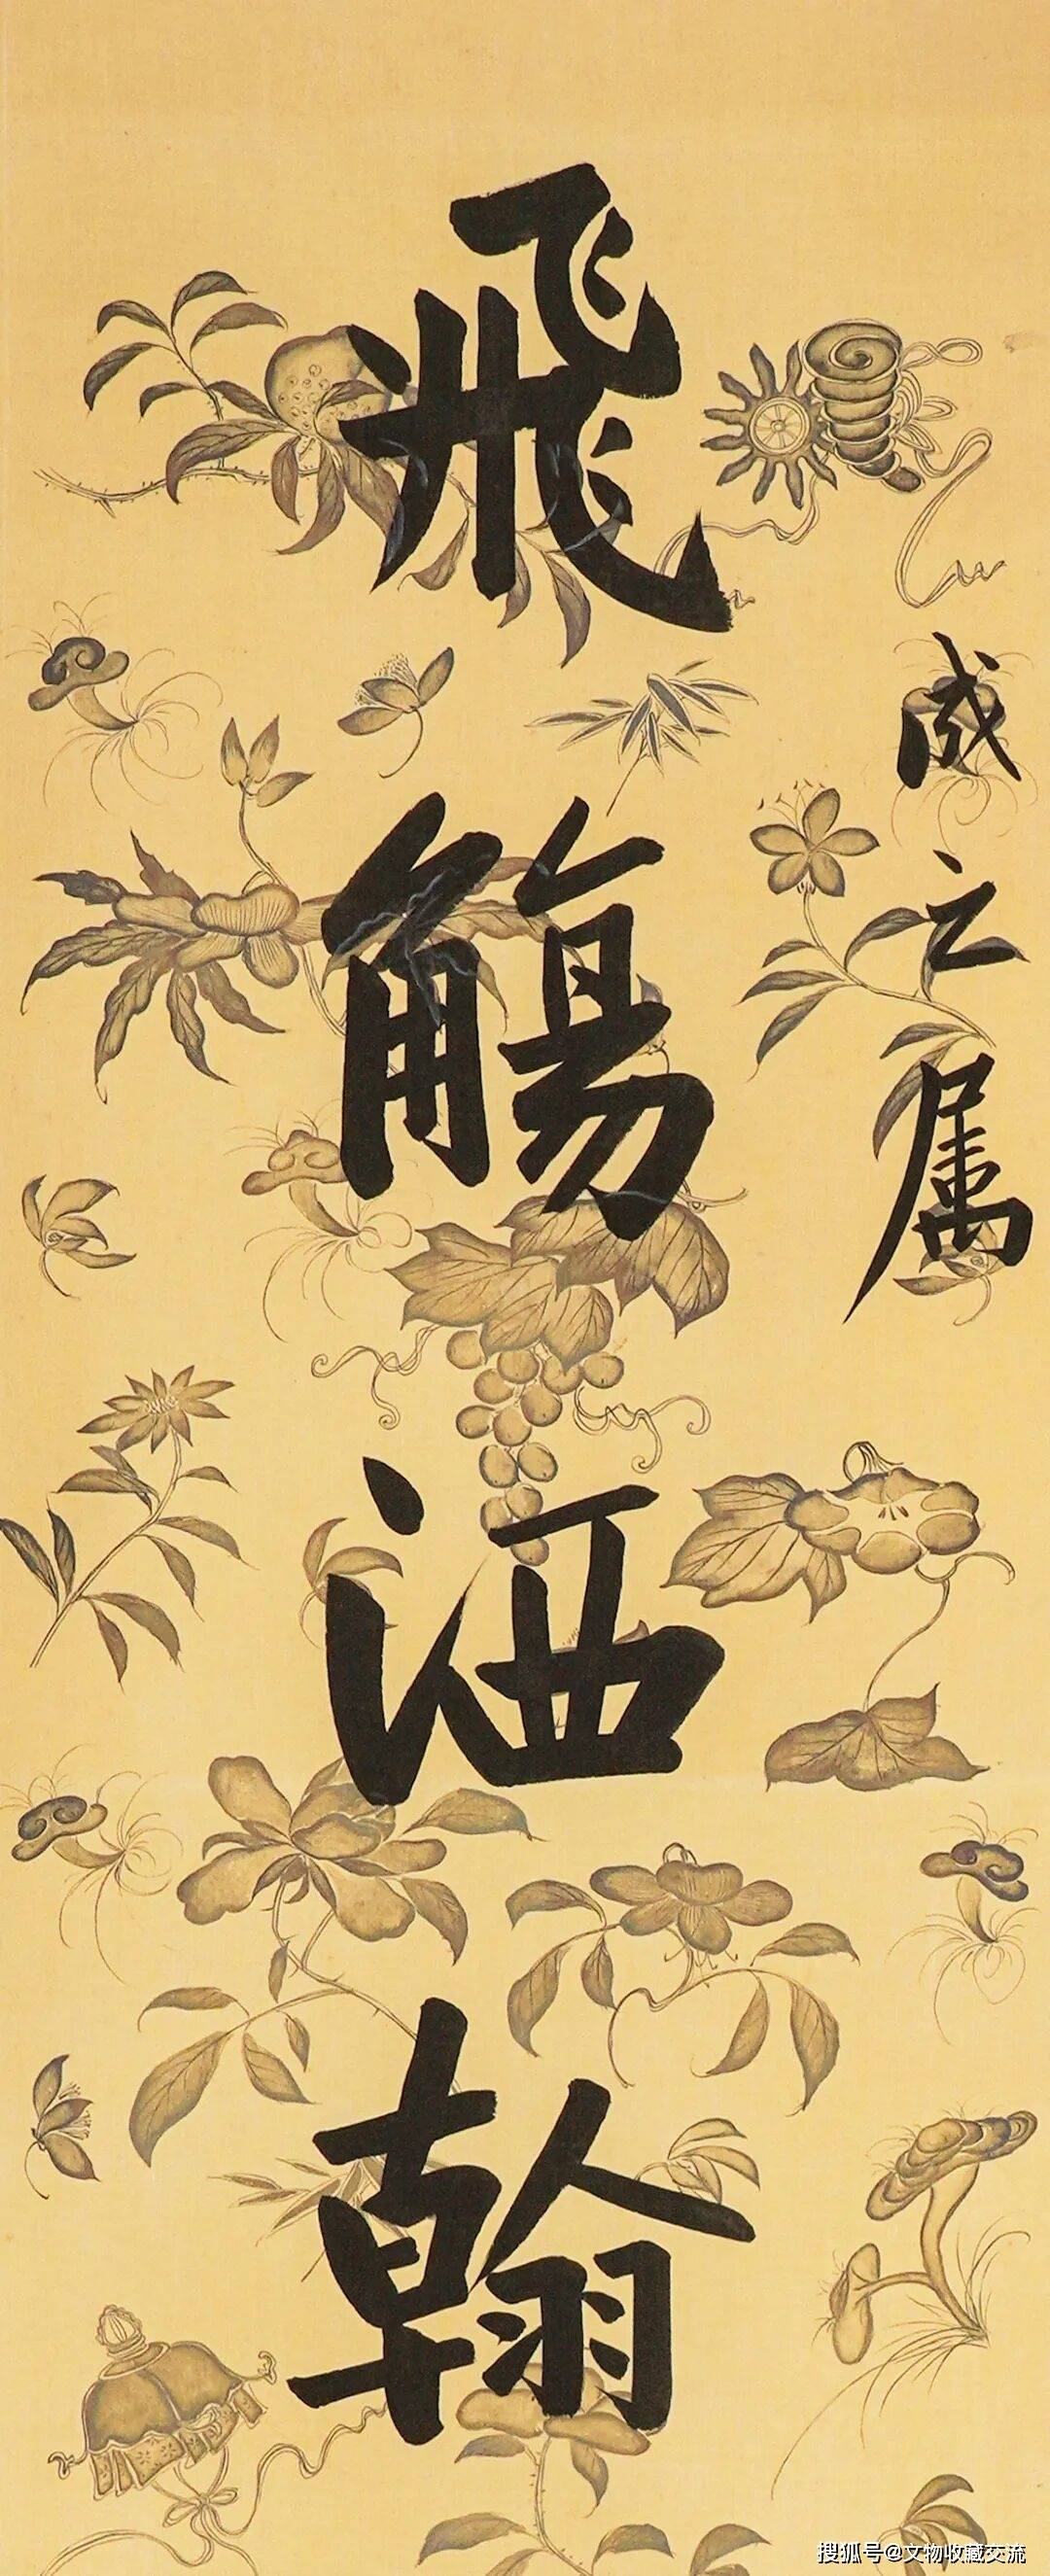 成之属
飛觴洒翰
搜狐号@文物收藏交流